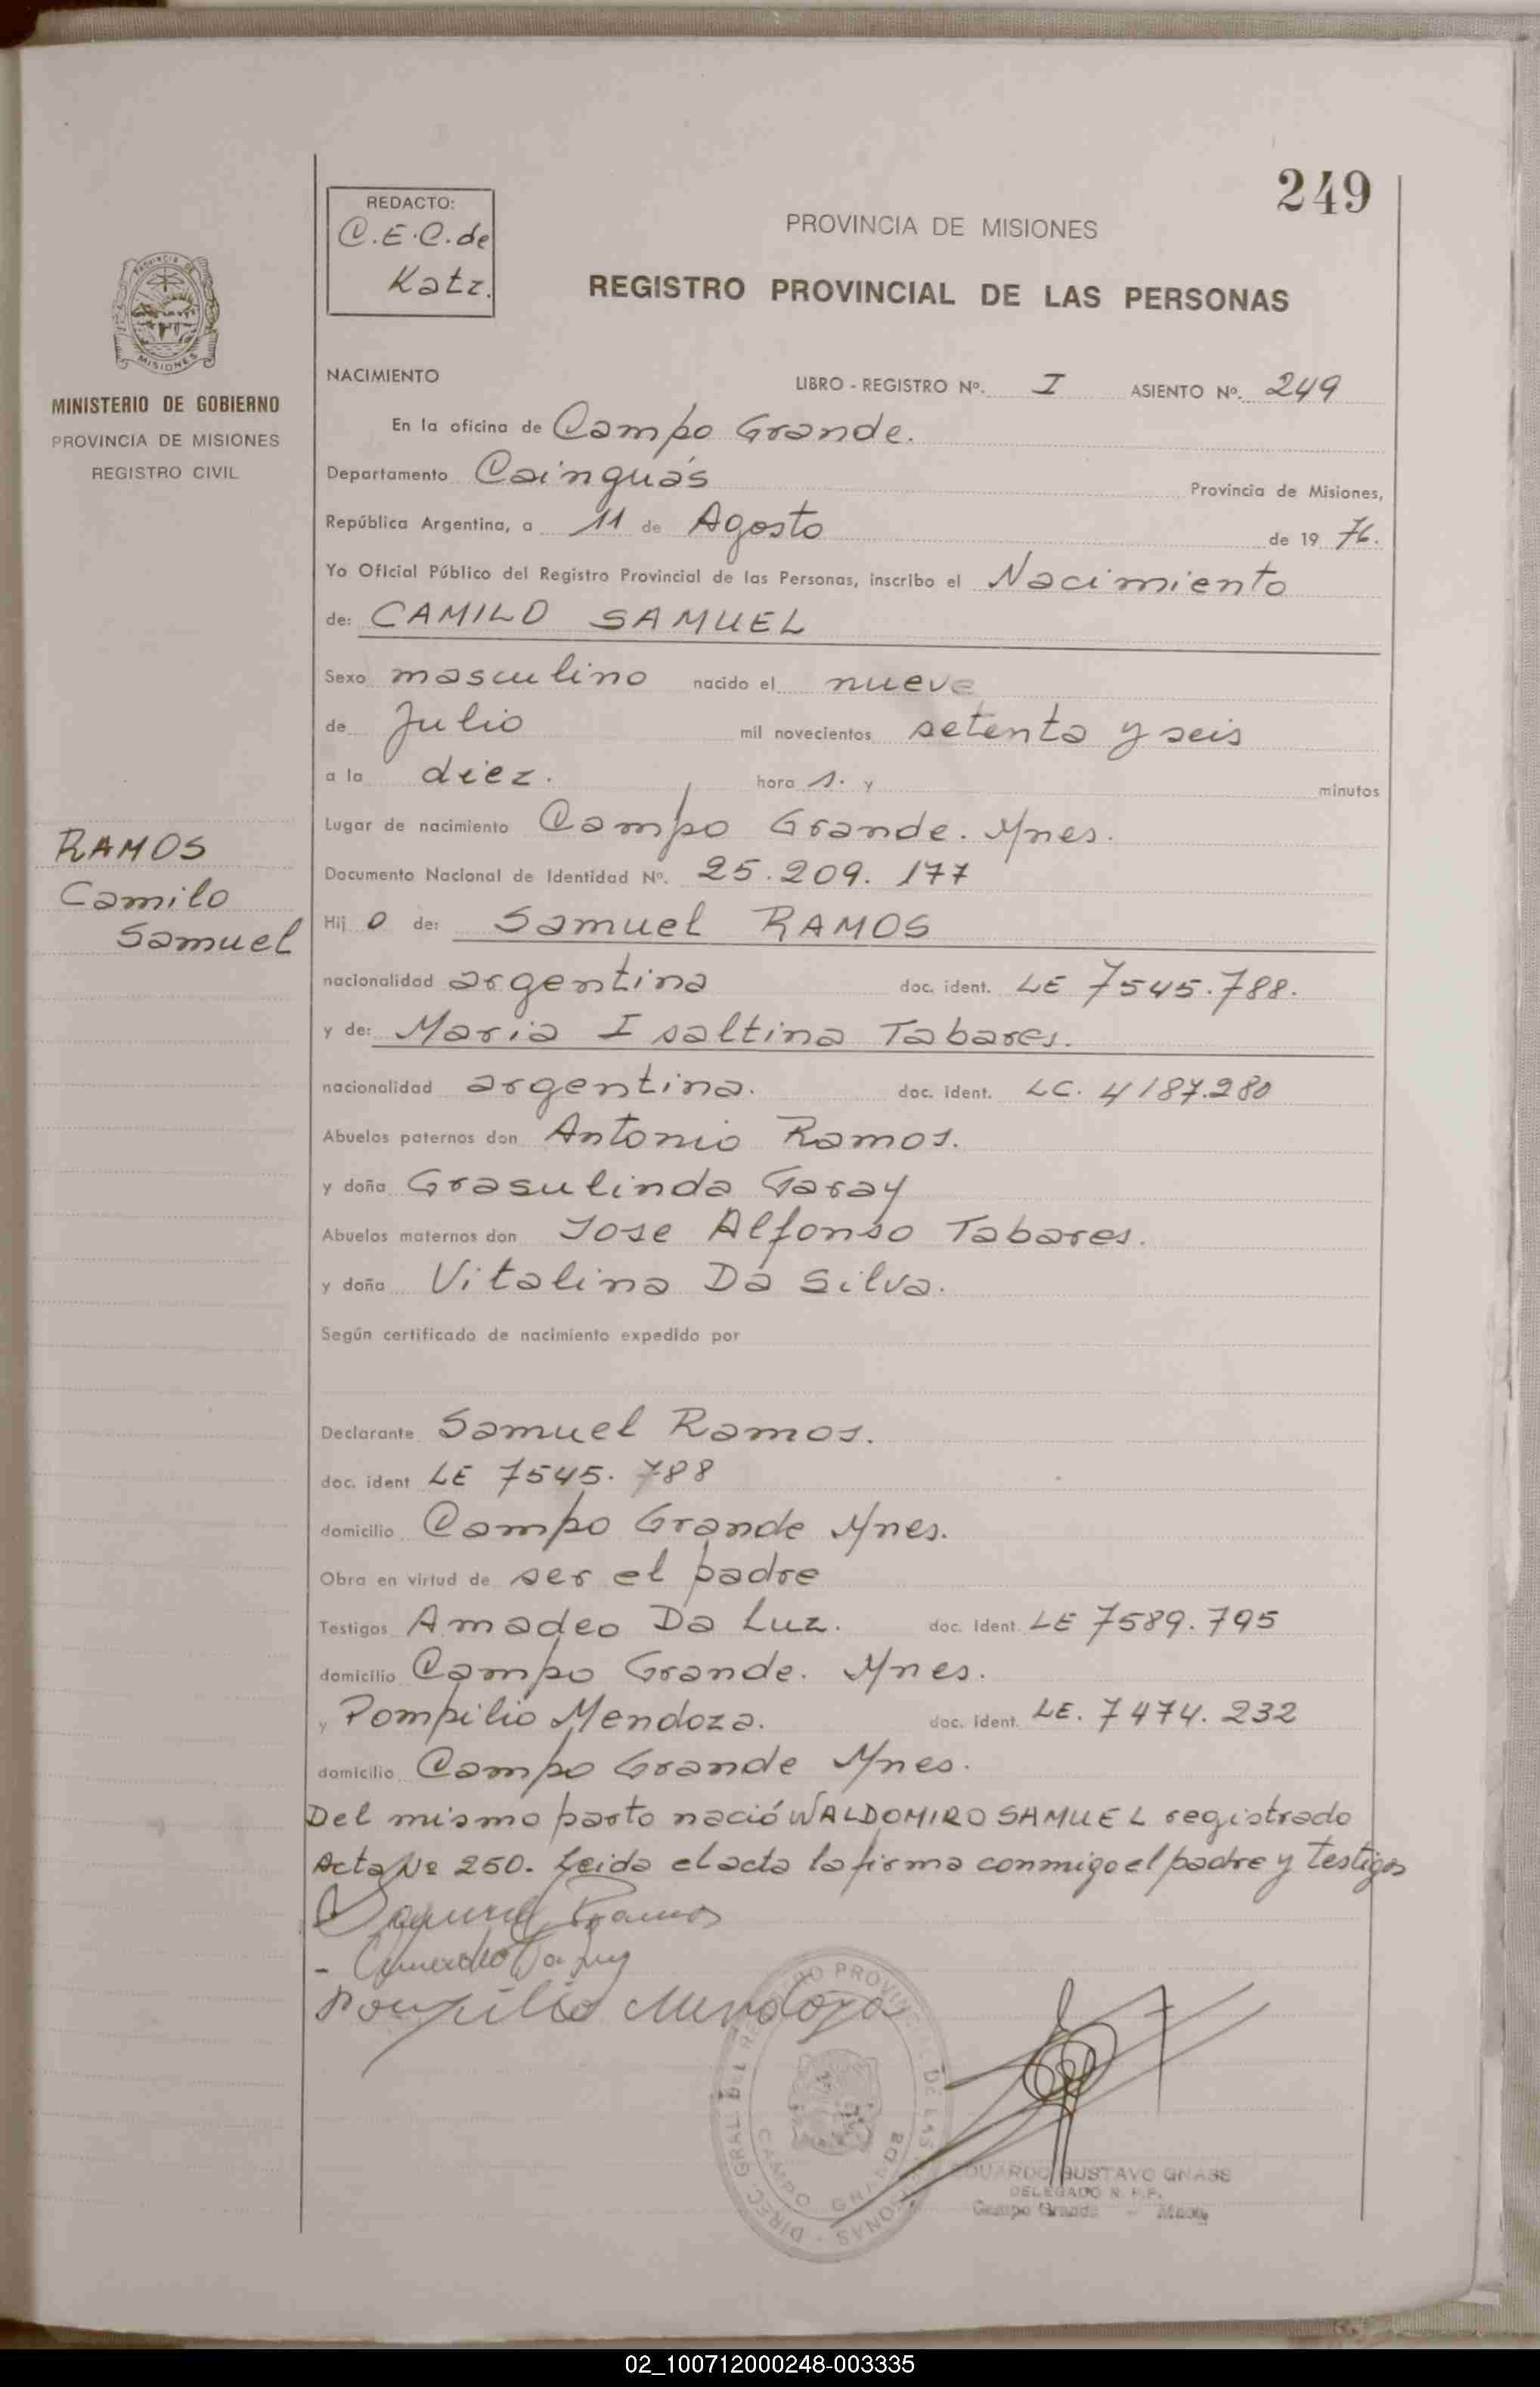 249
REDACTO:
C.E.C. de
Katz.
PROVINCIA DE MISIONES
REGISTRO PROVINCIAL DE LAS PERSONAS
PROVINCIA DE
MISIONES
MINISTERIO DE GOBIERNO
PROVINCIA DE MISIONES
REGISTRO CIVIL
NACIMIENTO
LIBRO - REGISTRO Nº. I ASIENTO Nº. 249
En la oficina de Campo Grande.
Departamento Cainguás Provincia de Misiones,
República Argentina, a 11 de Agosto de 19 76.
Yo Oficial Público del Registro Provincial de las Personas, inscribo el Nacimiento
de: CAMILO SAMUEL
Sexo masculino nacido el nueve
de Julio mil novecientos setenta y seis
a la diez. hora s. y minutos
Lugar de nacimiento Campo Grande. Mnes.
Documento Nacional de Identidad Nº. 25.209.177
RAMOS
Camilo
Samuel
Hij o de: Samuel RAMOS
nacionalidad argentina doc. ident. LE 7545.788.
y de: Maria Isaltina Tabares.
nacionalidad argentina. doc. ident. LC. 4187.280
Abuelos paternos don Antonio Ramos.
y doña Grasulinda Garay
Abuelos maternos don Jose Alfonso Tabares.
y doña Vitalina Da Silva.
Según certificado de nacimiento expedido por
Declarante Samuel Ramos.
doc. ident LE 7545.788
domicilio Campo Grande Mnes.
Obra en virtud de ser el padre
Testigos Amadeo Da Luz. doc. ident. LE 7589.795
domicilio Campo Grande. Mnes.
y Pompilio Mendoza. doc. ident. LE. 7474.232
domicilio Campo Grande Mnes.
Del mismo parto nació WALDOMIRO SAMUEL registrado
Acta Nº 250. Leida el acta la firma conmigo el padre y testigos
Samuel Ramos
- Amadeo Da Luz
Pompilio Mendoza
DIREC. GRAL. DEL REGISTRO PROVINCIAL DE LAS PERSONAS
CAMPO GRANDE
EDUARDO GUSTAVO GNASS
DELEGADO R. P. P.
Campo Grande - Mnes.
02_100712000248-003335